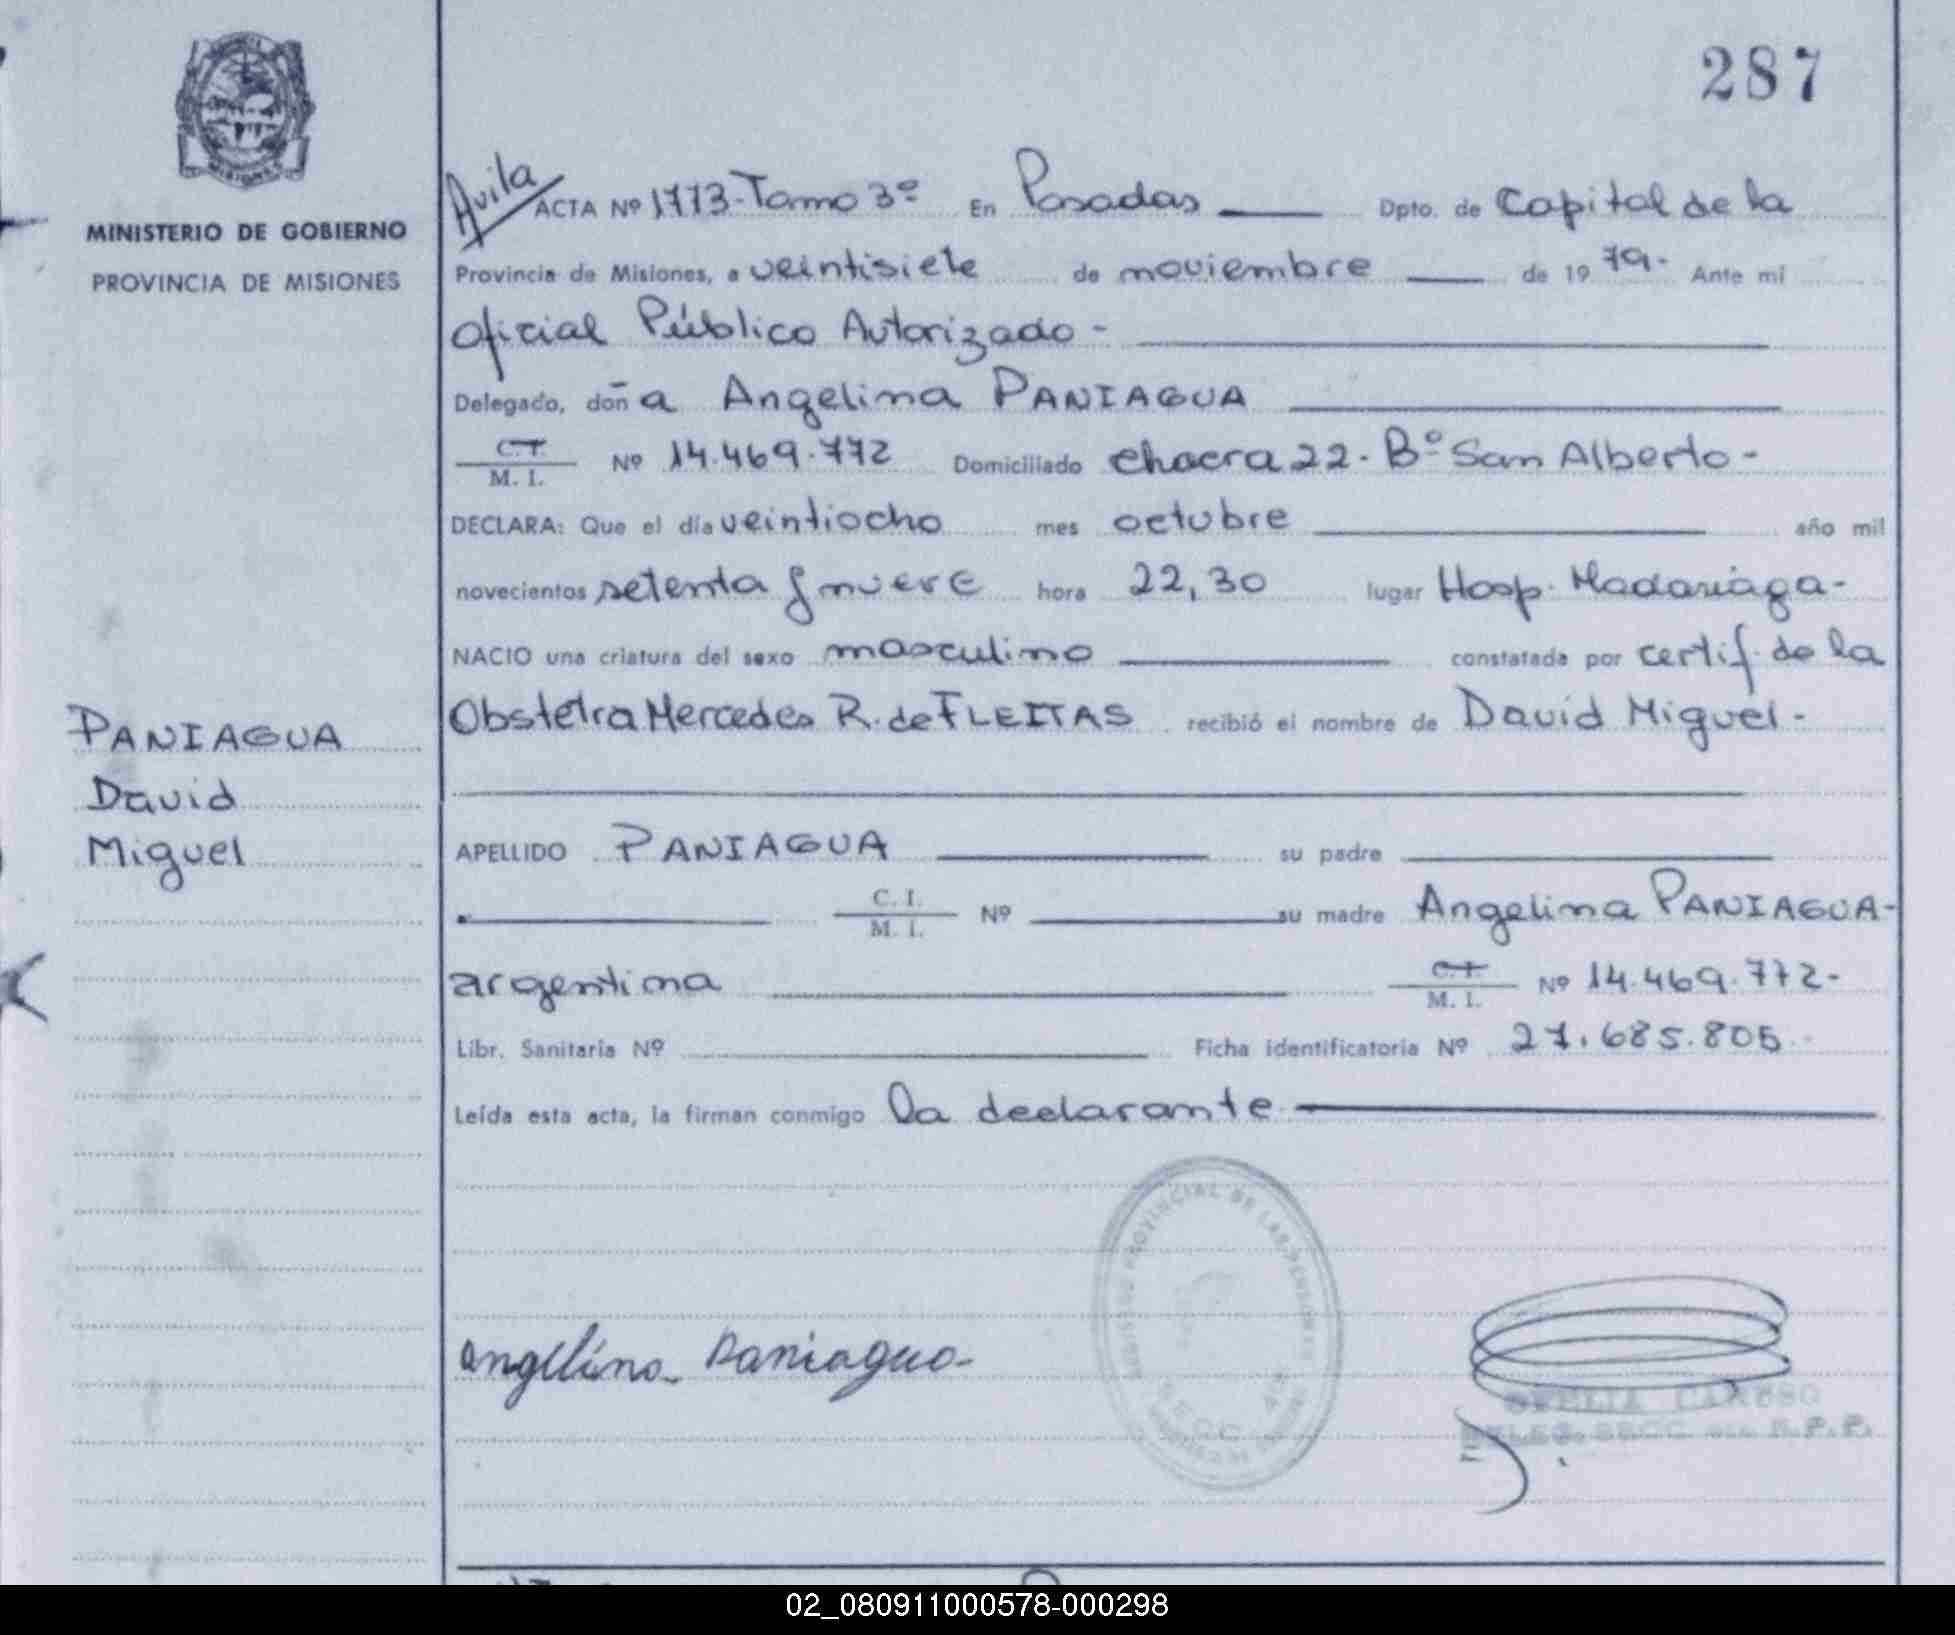 287
MISIONES
MINISTERIO DE GOBIERNO
PROVINCIA DE MISIONES
PANIAGUA
David
Miguel
Avila ACTA Nº 1773-Tomo 3º En Posadas Dpto. de Capital de la
Provincia de Misiones, a veintisiete de noviembre de 19 79. Ante mí
oficial Público Autorizado -
Delegado, doña Angelina PANIAGUA
C.I. M. I. Nº 14.469.772 Domiciliado chacra 22. Bº San Alberto -
DECLARA: Que el día veintiocho mes octubre año mil
novecientos setenta y nueve hora 22,30 lugar Hosp. Madariaga -
NACIO una criatura del sexo masculino constatada por certif. de la
Obstetra Mercedes R. de FLEITAS recibió el nombre de David Miguel -
APELLIDO PANIAGUA su padre
C. I. M. I. Nº su madre Angelina PANIAGUA -
argentina C.I. M. I. Nº 14.469.772-
Libr. Sanitaria Nº Ficha identificatoria Nº 27.685.805
Leída esta acta, la firman conmigo la declarante
PROVINCIAL DE LAS PERSONAS
Angelina Paniagua
OFELIA CARUSO
02_080911000578-000298